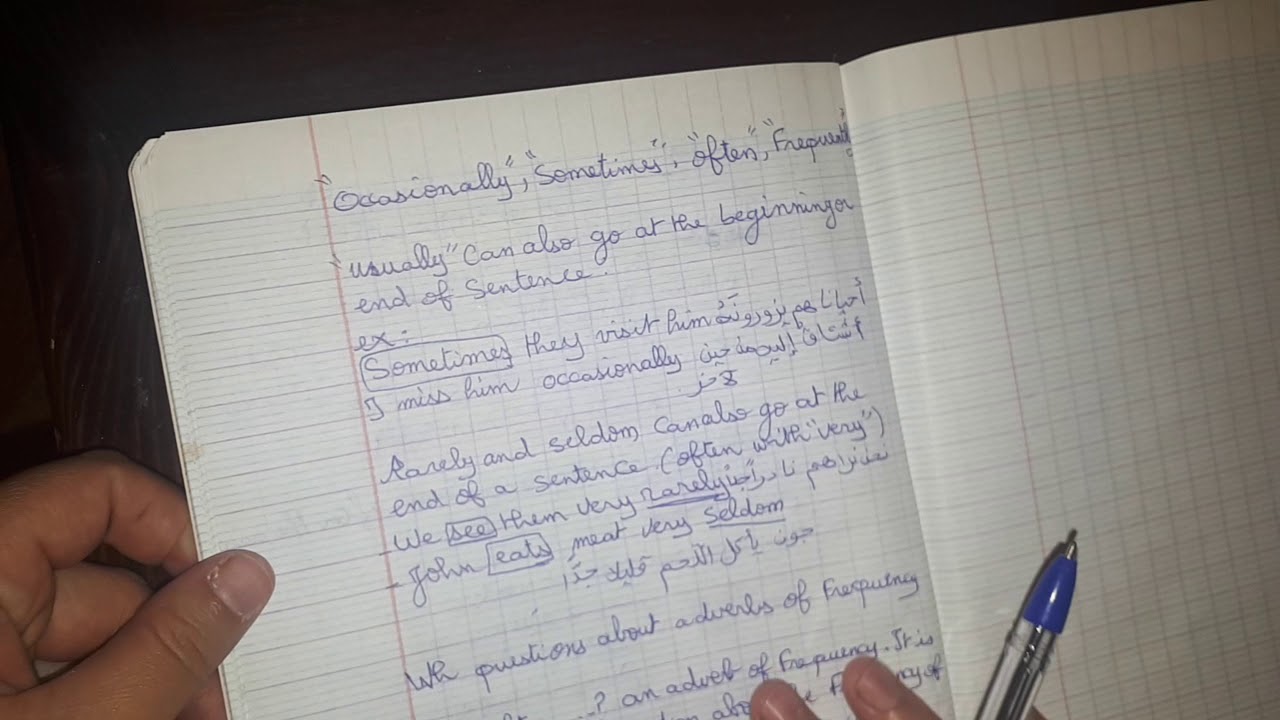 "Occasionally", "Sometimes", "often", "Frequently"
"usually" Can also go at the beginning or
end of Sentence.
ex:
Sometimes they visit him أحيانا هم يزورونه
I miss him occasionally أشتاق إليه من حين
لآخر
Rarely and seldom can also go at the
end of a sentence. (often with "very")
- We see them very rarely نحن نراهم نادرا جدا
- John eats meat very seldom
جون يأكل اللحم قليلا جدّا
Wh questions about adverbs of Frequency
...? an adverb of Frequency. It is
Frequency of